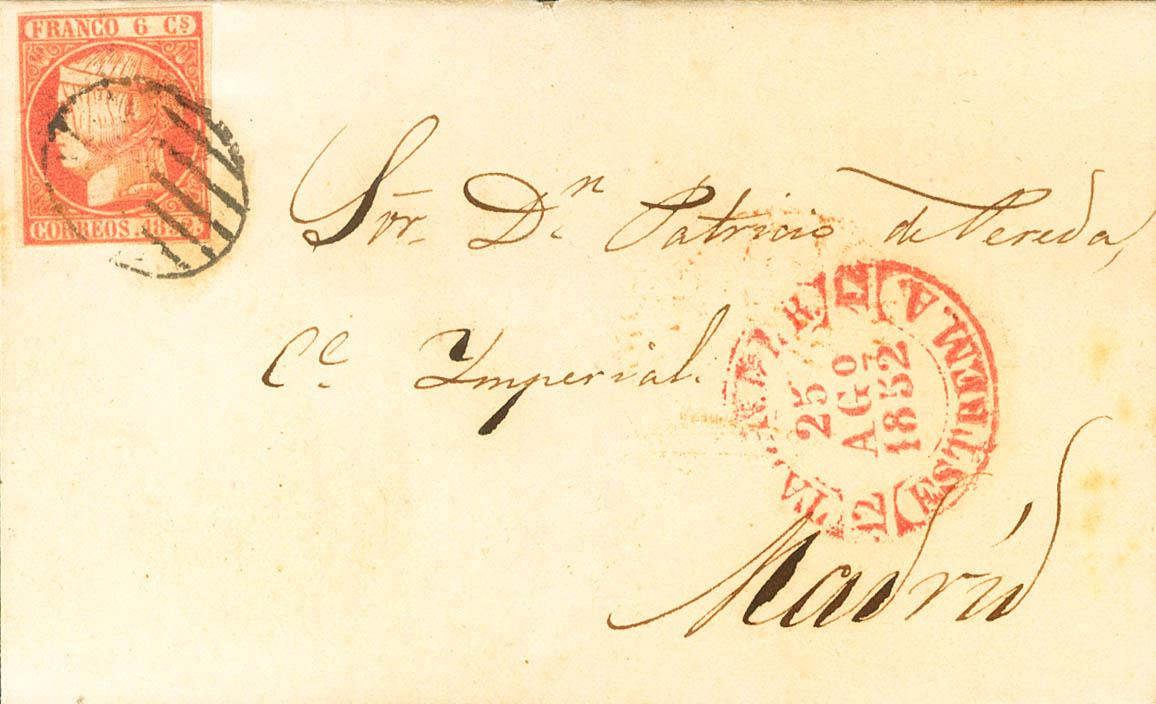 FRANCO 6 Cs
CORREOS. 1852.
Sōr. Dn. Patricio de Pereda,
Ce. Imperial.
25
AGO
1852
2
ESTREM. A.
Madrid